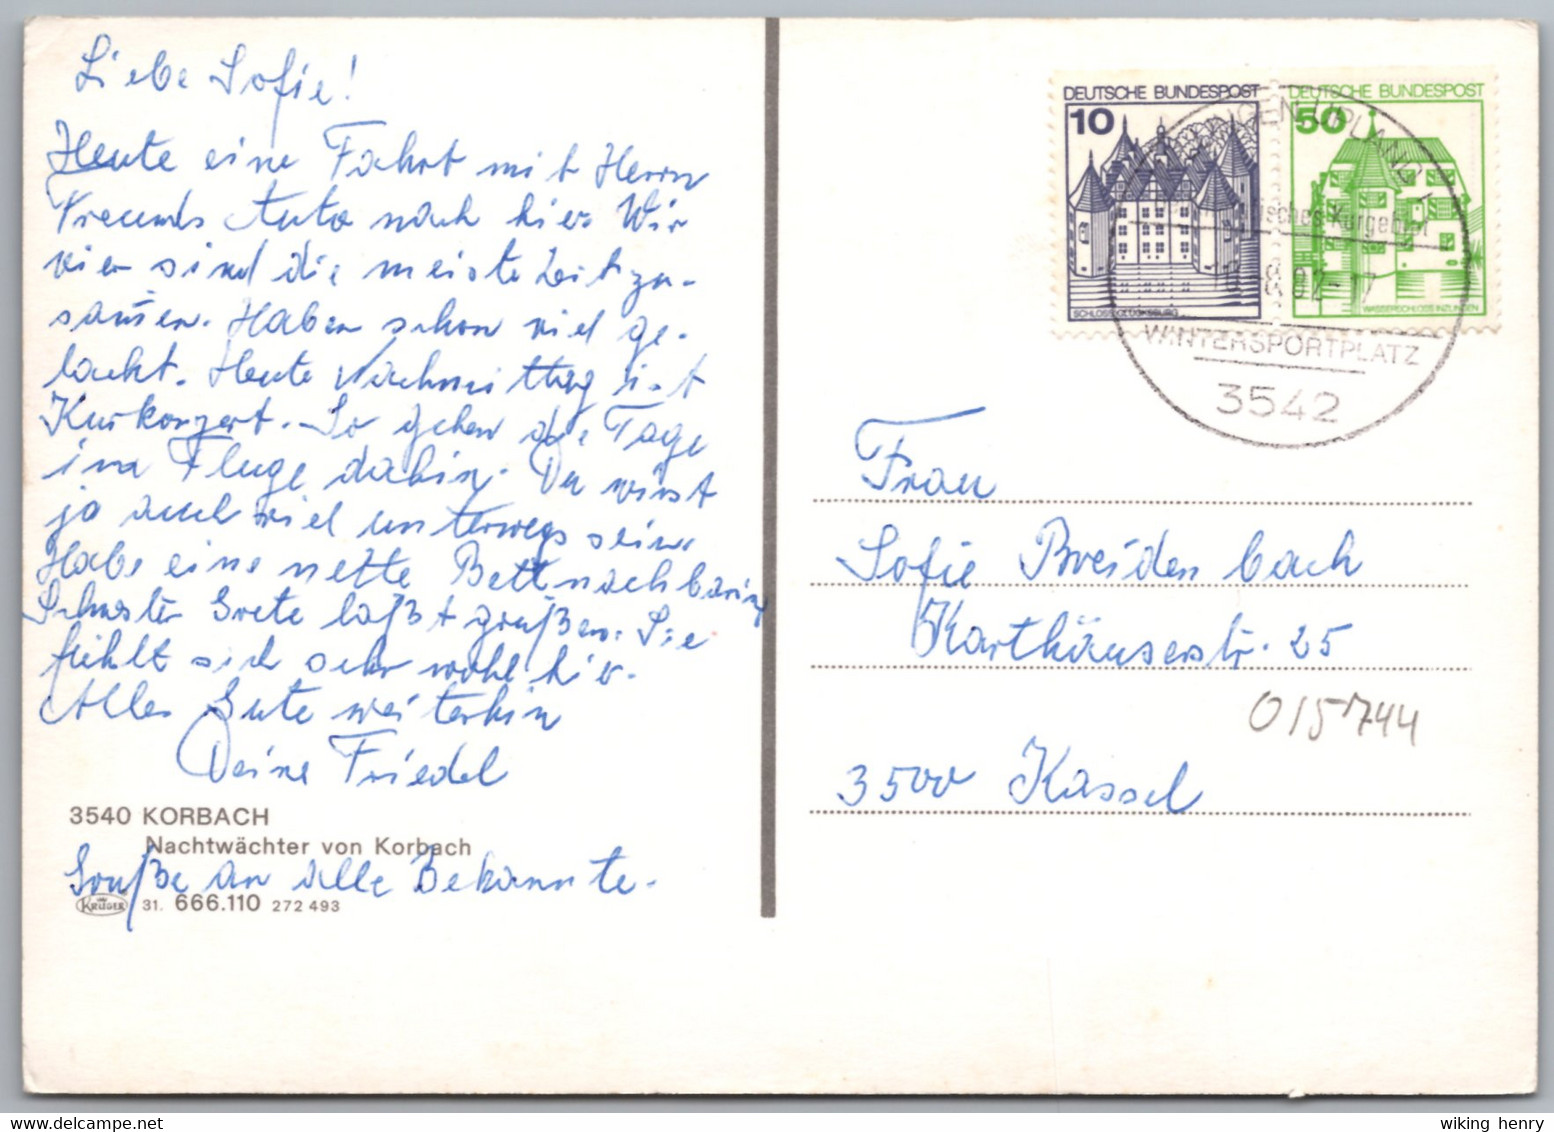 Liebe Sofie!
Heute eine Fahrt mit Herrn
Auto nach hier Wir
vier sind die meiste Zeit zu-
samen. Haben schon viel ge-
lacht. Heute Nachmittag ist
Kurkonzert. So gehen die Tage
im Fluge dahin. Du wirst
ja auch viel unterwegs sein.
Habe eine nette Bettnachbarin
Schwester Grete läßt grüßen. Sie
fühlt sich sehr wohl hier.
Alles Gute weiterhin
Deine Friedel
3540 KORBACH
Nachtwächter von Korbach
Grüße an alle Bekannte.
KRÜGER 31. 666.110 272 493
DEUTSCHE BUNDESPOST
10
SCHLOSS GLÜCKSBURG
DEUTSCHE BUNDESPOST
50
WASSERSCHLOSS INZLINGEN
GEN UPLAND 1
isches Kurgebiet
8.82-17
WINTERSPORTPLATZ
3542
Frau
Sofie Breidenbach
Karthäuserstr. 25
015744
3500 Kassel
wiking henry